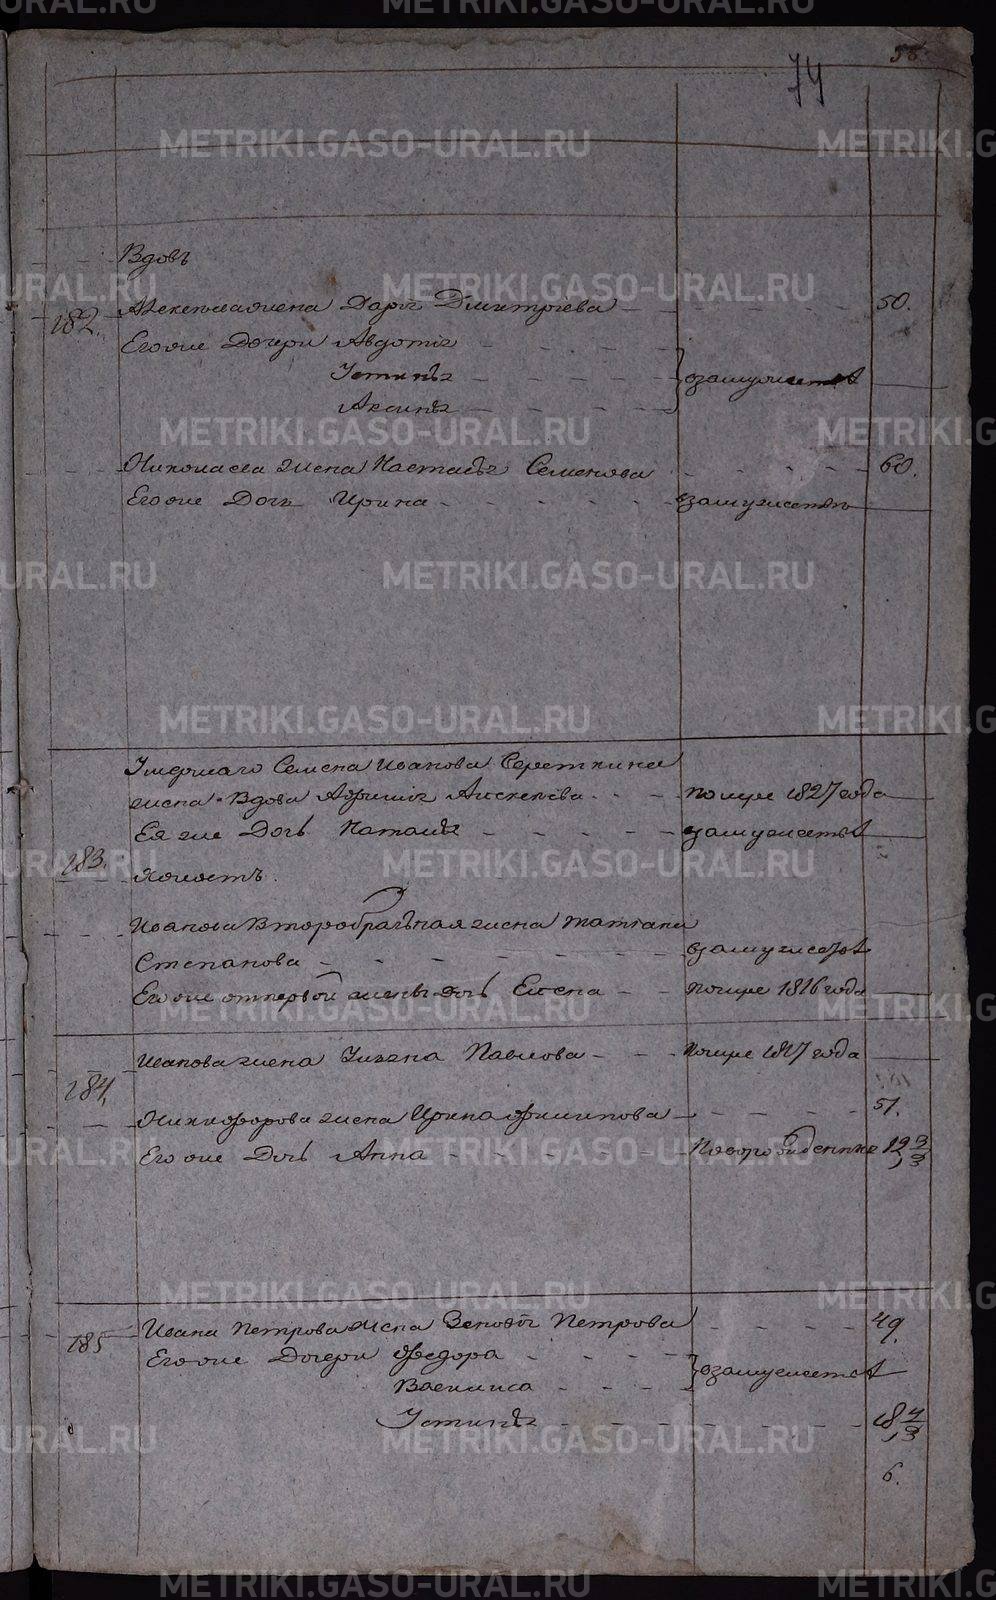 58.
74
Вдовъ
182.
Алексѣева жена Дарья Дмитріева 50.
Его же Дочери Авдотья
Устинья } взамужествѣ
Аксинья
Николаева жена Настасья Семенова 60.
Его же Дочь Ирина взамужествѣ
Умершаго Семена Иванова
жена Вдова Алексѣева помре 1827 года
Ея же Дочь Наталья взамужествѣ
183.
Холостъ.
Иванова Второбрачная жена Татьяна
Степанова взамужествѣ
Его же отпервой жены дочь Елена помре 1816 года
Иванова жена Ульяна Павлова помре года
184.
Никифорова жена Ирина Филипова 51.
Его же Дочь Анна Новорожденные 12 3/3
185
Ивана Петрова жена Зеновья Петрова 49.
Его же Дочери Федора
Василиса } взамужествѣ
Устинья 18 4/3
6.
METRIKI.GASO-URAL.RU